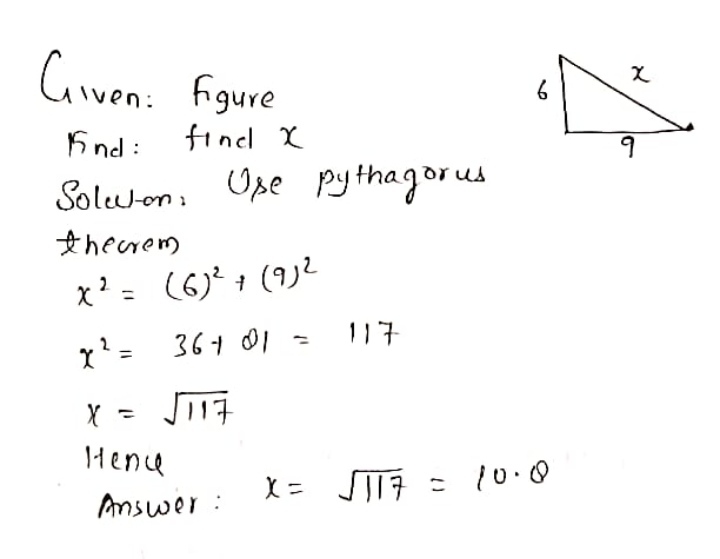 Given: figure
Find: find x
Solution: Use pythagorus
theorem
x² = (6)² + (9)²
x² = 36 + 81 = 117
x = √117
Hence
Answer: x = √117 = 10.8
6
x
9